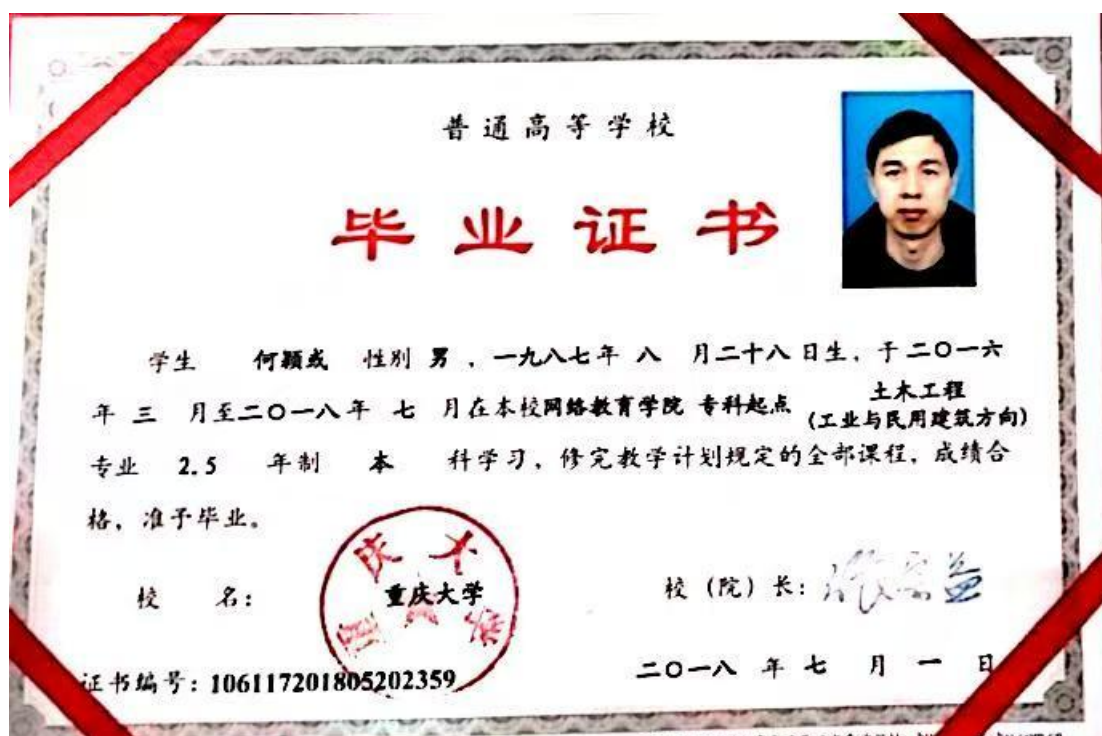 普通高等学校
毕业证书
学生 何颖或 性别 男，一九八七年 八 月二十八日生，于二〇一六
年 三 月至二〇一八年 七 月在本校网络教育学院 专科起点 土木工程
(工业与民用建筑方向)
专业 2.5 年制 本 科学习，修完教学计划规定的全部课程，成绩合
格，准予毕业。
校 名：重庆大学
校（院）长：
证书编号：106117201805202359
二〇一八 年 七 月 一 日